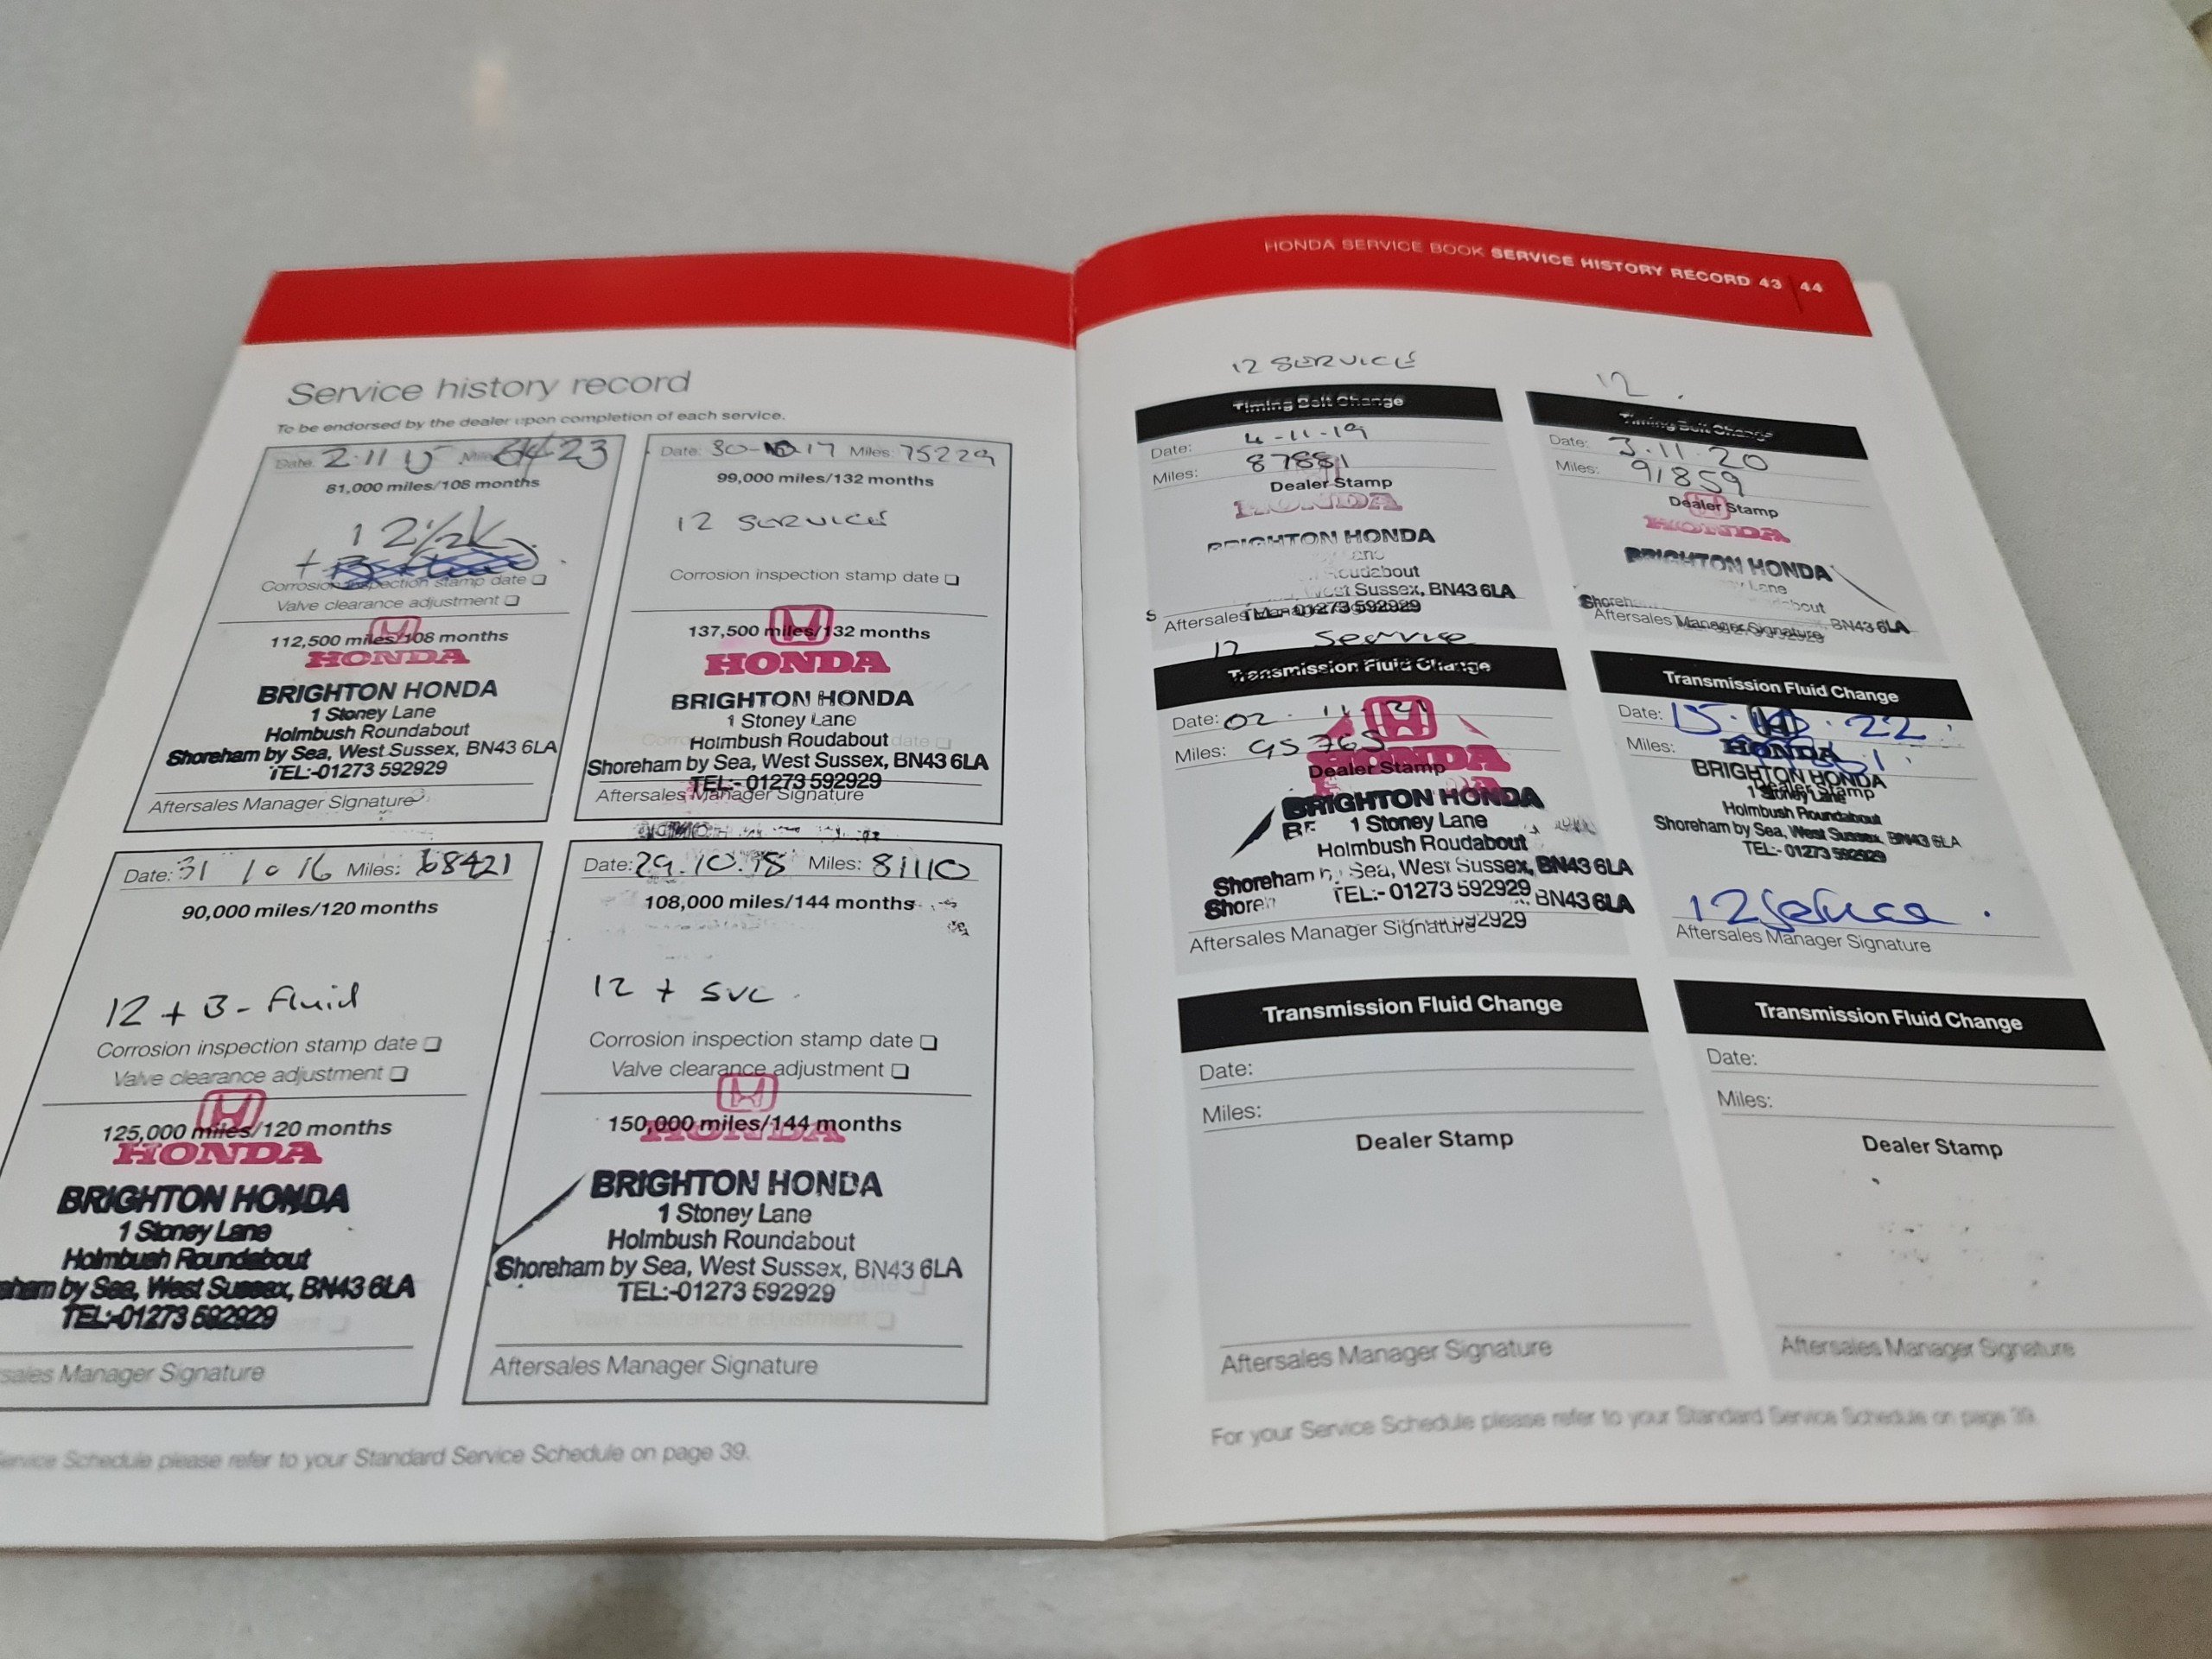 HONDA SERVICE BOOK SERVICE HISTORY RECORD 43 | 44
Service history record
To be endorsed by the dealer upon completion of each service.
Date: 2.11 15 Miles: 64423
81,000 miles/108 months
12 1/2K
+
Corrosion inspection stamp date
Valve clearance adjustment
112,500 miles/108 months
HONDA
BRIGHTON HONDA
1 Stoney Lane
Holmbush Roundabout
Shoreham by Sea, West Sussex, BN43 6LA
TEL:-01273 592929
Aftersales Manager Signature
Date: 30-10-17 Miles: 75229
99,000 miles/132 months
12 SERVICE
Corrosion inspection stamp date
137,500 miles/132 months
HONDA
BRIGHTON HONDA
1 Stoney Lane
Holmbush Roudabout
Shoreham by Sea, West Sussex, BN43 6LA
TEL:- 01273 592929
Aftersales Manager Signature
Date: 31 10 16 Miles: 68421
90,000 miles/120 months
12 + B-Fluid
Corrosion inspection stamp date
Valve clearance adjustment
125,000 miles/120 months
HONDA
BRIGHTON HONDA
1 Stoney Lane
Holmbush Roundabout
ham by Sea, West Sussex, BN43 6LA
TEL:-01273 592929
sales Manager Signature
Date: 29.10.18 Miles: 81110
108,000 miles/144 months
12 + SVC.
Corrosion inspection stamp date
Valve clearance adjustment
150,000 miles/144 months
HONDA
BRIGHTON HONDA
1 Stoney Lane
Holmbush Roundabout
Shoreham by Sea, West Sussex, BN43 6LA
TEL:-01273 592929
Aftersales Manager Signature
Service Schedule please refer to your Standard Service Schedule on page 39.
12 SERVICE
Timing Belt Change
Date: 4-11-19
Miles: 87881
Dealer Stamp
HONDA
BRIGHTON HONDA
Lane
Roudabout
West Sussex, BN43 6LA
TEL:- 01273 592929
Aftersales Manager Signature
12.
Timing Belt Change
Date: 3.11.20
Miles: 91859
Dealer Stamp
HONDA
BRIGHTON HONDA
Lane
BN43 6LA
Aftersales Manager Signature
12 Service
Transmission Fluid Change
Date: 02.11.21
Miles: 95765
HONDA
Dealer Stamp
BRIGHTON HONDA
1 Stoney Lane
Holmbush Roudabout
Shoreham by Sea, West Sussex, BN43 6LA
TEL:- 01273 592929
BN43 6LA
Aftersales Manager Signature
Transmission Fluid Change
Date: 22.
Miles:
HONDA
BRIGHTON HONDA
Dealer Stamp
1 Stoney Lane
Holmbush Roundabout
Shoreham by Sea, West Sussex, BN43 6LA
TEL:- 01273 592929
12 Service.
Aftersales Manager Signature
Transmission Fluid Change
Date:
Miles:
Dealer Stamp
Aftersales Manager Signature
Transmission Fluid Change
Date:
Miles:
Dealer Stamp
Aftersales Manager Signature
For your Service Schedule please refer to your Standard Service Schedule on page 39.